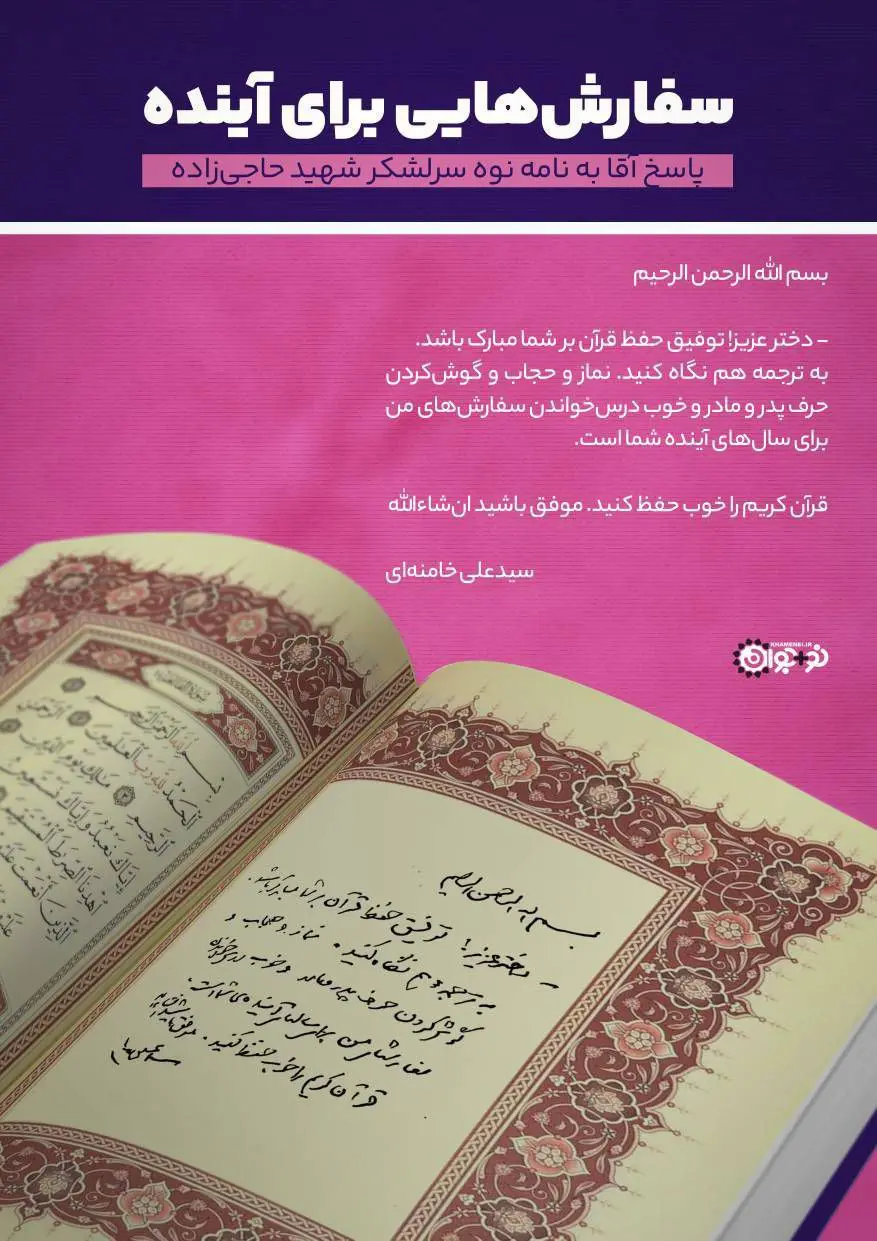 سفارش‌هایی برای آینده
پاسخ آقا به نامه نوه سرلشکر شهید حاجی‌زاده
بسم الله الرحمن الرحیم
- دختر عزیز! توفیق حفظ قرآن بر شما مبارک باشد.
به ترجمه هم نگاه کنید. نماز و حجاب و گوش‌کردن
حرف پدر و مادر و خوب درس‌خواندن سفارش‌های من
برای سال‌های آینده شما است.
قرآن کریم را خوب حفظ کنید. موفق باشید ان‌شاءالله
سیدعلی خامنه‌ای
KHAMENEI.IR
نو+جوان
بسم الله الرحمن الرحیم
- دختر عزیز! توفیق حفظ قرآن بر شما مبارک باشد.
به ترجمه هم نگاه کنید. نماز و حجاب و
گوش کردن حرف پدر و مادر و خوب درس خواندن
سفارشهای من برای سالهای آینده‌ی شما است.
قرآن کریم را خوب حفظ کنید. موفق باشید ان‌شاءالله